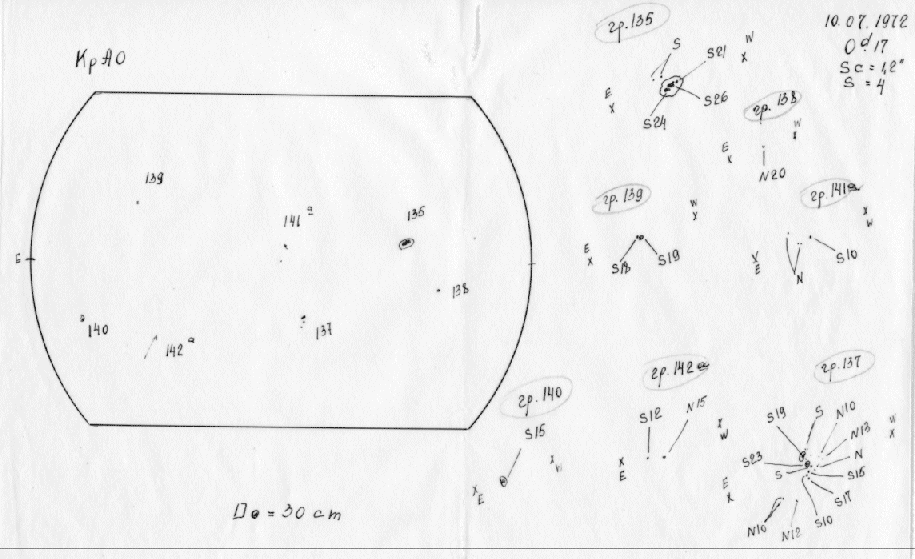 КрАО
139
141ª
135
138
137
140
142ª
E
D⊙ = 30 cm
10.07.1972
S = 4
гр.135
S
W
X
S21
S26
S24
E
X
гр.138
W
X
E
X
N20
гр.139
W
X
E
X
S18
S19
гр.141a
X
W
X
E
S10
N
гр.140
S15
X
E
X
W
гр.142a
S12
N15
X
W
X
E
гр.137
S19
S
N10
N13
N
S16
S17
S10
N12
N16
S
S23
W
X
E
X